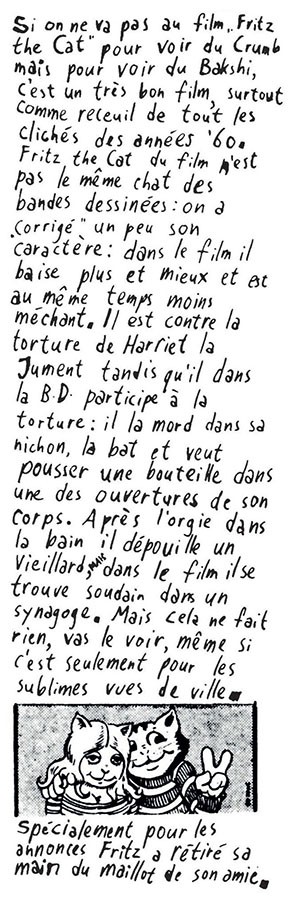 Si on ne va pas au film „Fritz
the Cat" pour voir du Crumb
mais pour voir du Bakshi,
c'est un très bon film, surtout
comme receuil de tout les
clichés des années '60.
Fritz the Cat du film n'est
pas le même chat des
bandes dessinées: on a
„corrigé" un peu son
caractère: dans le film il
baise plus et mieux et est
au même temps moins
méchant. Il est contre la
torture de Harriet la
Jument tandis qu'il dans
la B.D. participe à la
torture: il la mord dans sa
nichon, la bat et veut
pousser une bouteille dans
une des ouvertures de son
corps. Après l'orgie dans
la bain il dépouille un
vieillard, mais dans le film il se
trouve soudain dans un
synagoge. Mais cela ne fait
rien, vas le voir, même si
c'est seulement pour les
sublimes vues de ville.
Spécialement pour les
annonces Fritz a rétiré sa
main du maillot de son amie.